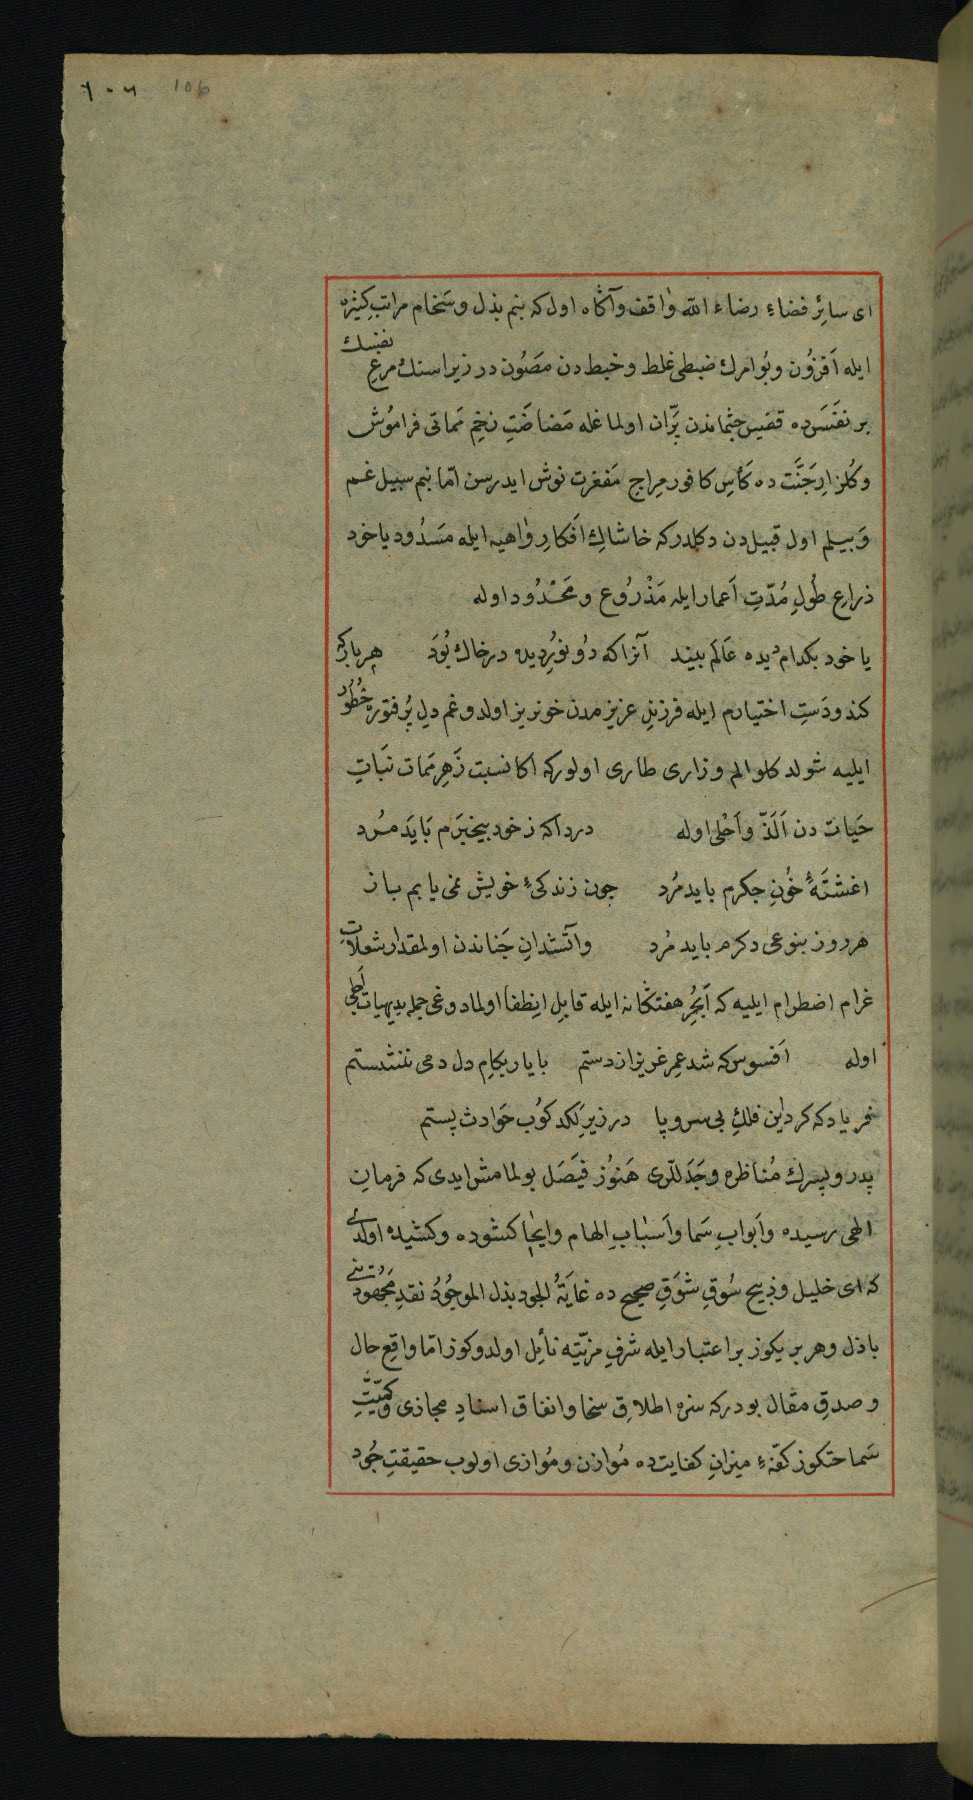 ١٠٦ 106
ای سائِر فضاءِ رضاءِ الله واقف وآگاه اول که بنم بذل وسخام مراتب کثیره
ایله اَفزُون وبُو امرك ضبطی غلط وخبط دن مَصَون در زیرا سنك مرغِ نفسك
بر نفَسَده قفیس جثماندن پَرّان اولماغله مَضاضَتِ زخِم مَماتی فرامُوش
وکُلزارِ جَنَّت ده کَأسِ کافور مِزاجِ مَغفرت نوش ایدرسن امّا بنم سبیل غم
وَبیلم اول قبیل دن دکلدر که خاشاكِ افکارِ واهیه ایله مَسدُود یاخود
ذراعِ طُولِ مُدّتِ اَعمار ایله مَذرُوع ومَحدُود اوله
یاخود بکدام دیده عالَم بیند آنرا که دُو نورِ دیده در خاك بُوَد هر بار که
کند ودَستِ اختیارم ایله فرزندِ عزیزمدن خونریز اولدوغم دلِ پُر فتوره خُطوُر
ایلیه شولدکلو الم وزاری طاری اولور که اکا نسبت زَهرِ مَمات نَباتِ
حَیات دن اَلَذّ واَحلی اوله دردا که ز خود بیخبرم باید مرد
اغشتَهٔ خُونِ جکرم باید مُرد چون زندکیءِ خویش نمی یابم باز
هر روز بنوعی دکرم باید مُرد وآتشدانِ جَناندن اولمقدار شعلاتِ
غرام اضطرام ایلیه که اَبحُرِ هفتکانه ایله قابلِ اِنطفا اولمادوغی جمله بدیهیات لَظی
اوله اَفسوس که شد عمرِ عزیز از دستم با یار بکامِ دل دمی ننشستم
فریاد که کرد این فلكِ بی سر وپا در زیرِ لکد کوُب حَوادث پستم
پدر وپسرك مُناظره وجَدَللری هَنوُز فیَصَل بولمامش ایدی که فرمانِ
الهی رسیده وابوابِ سَما واَسبابِ الهام وایحا کشوده وکشیده اولدی
که ای خلیل وذبیح سُوقِ شَوقِ صحیح ده غایَةُ الجود بذل الموجُودُ نقدِ مَجهُودینی
باذل وهر بریکوز بر اعتبار ایله شرفِ مزیّته نائِل اولدوکوز امّا واقعِ حال
وصدقِ مقال بودر که سزه اطلاقِ سخا وانفاق اسنادِ مجازی وکمیّتِ
سَماحتکوز کفّهءِ میزانِ کفایت ده مُوازن ومُوازی اولوب حقیقتِ جُود